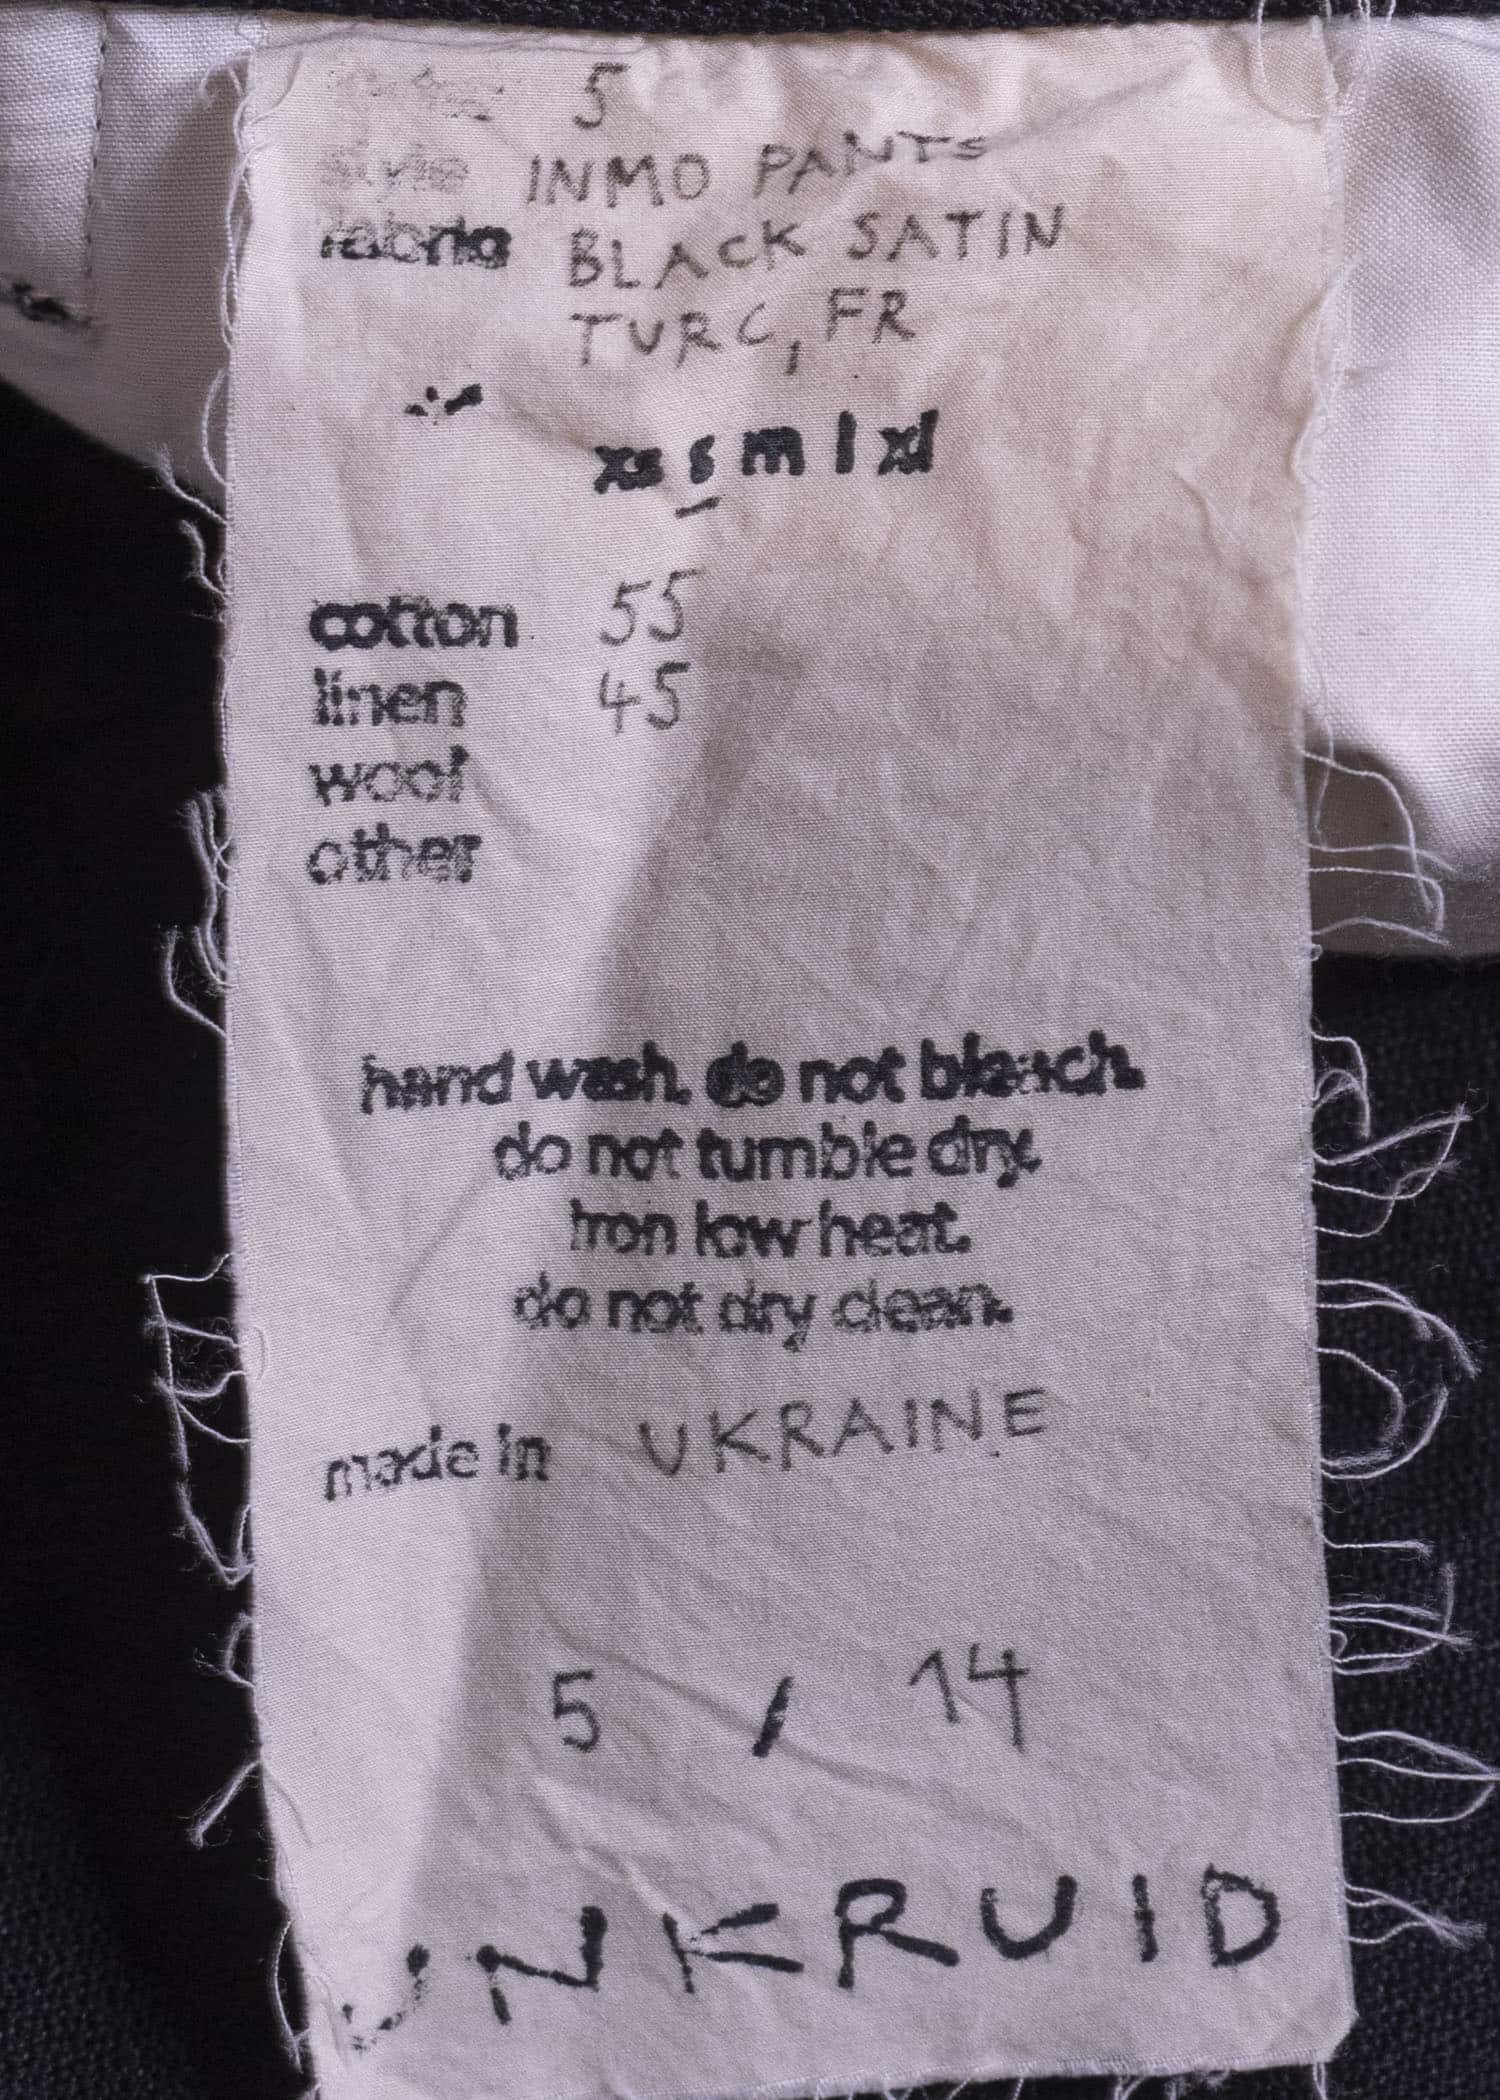 5
style INMO PANTS
fabric BLACK SATIN
TURC, FR
xs s m l xl
cotton 55
linen 45
wool
other
hand wash. do not bleach.
do not tumble dry.
iron low heat.
do not dry clean.
made in UKRAINE
5 / 14
UNKRUID